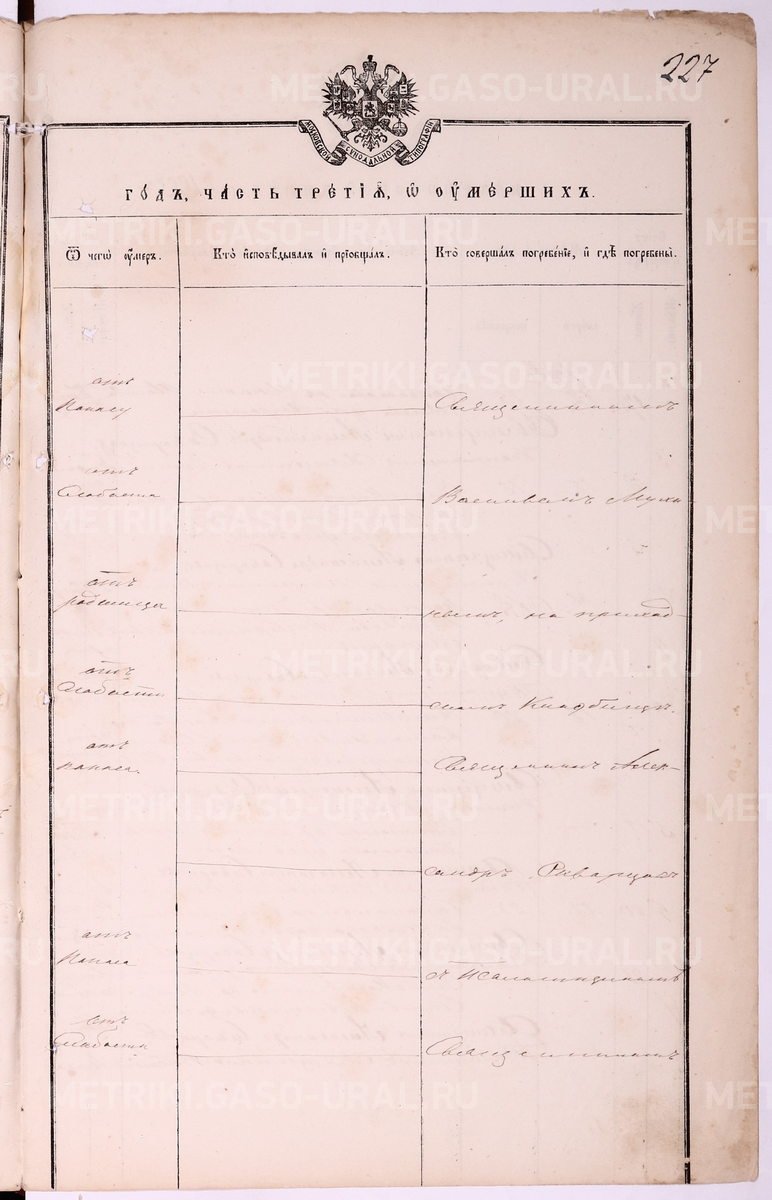 227
МОСКОВСКОЙ СѴНОДАЛЬНОЙ ТИПОГРАФІИ
ГО́ДЪ, ЧА́СТЬ ТРЕ́ТІѦ, Ѡ҆ ОУ҆МЕ́РШИХЪ.
Ѿ чегѡ̀ оу҆́меръ.
Кто̀ и҆сповѣ́дывалъ и҆ прїобща́лъ.
Кто̀ соверша́лъ погребе́нїе, и҆ гдѣ̀ погребены̀.
отъ
поносу
Священникомъ
отъ
Слабости
Василіемъ
отъ
родимца
на приход-
отъ
Слабости
скомъ Кладбищѣ.
отъ
поноса.
Священникъ Алек-
сандръ
отъ
поноса
съ Псаломщикомъ
отъ
Слабости
Священникомъ
METRIKI.GASO-URAL.RU